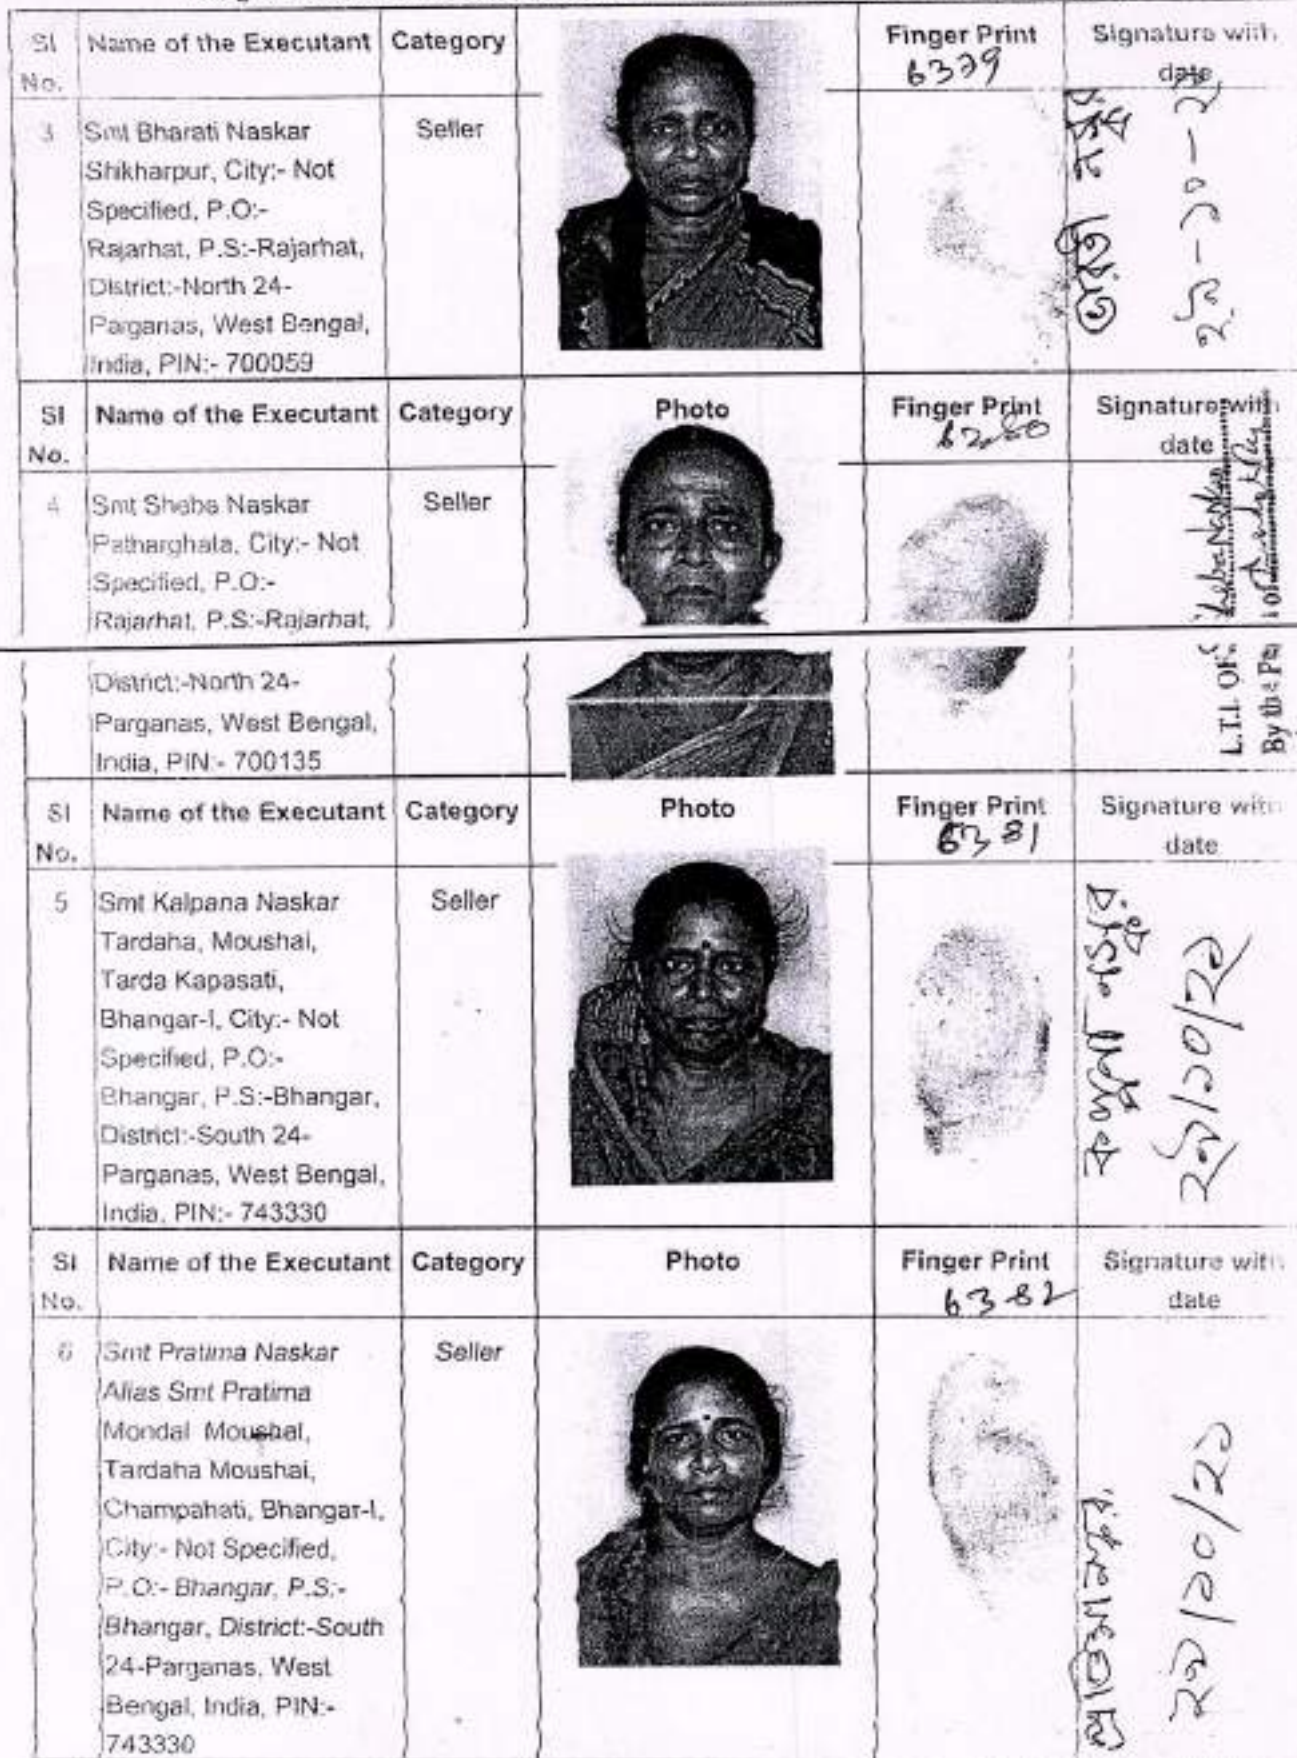 Sl Name of the Executant Category Finger Print Signature with
No. 6379 date
3 Smt Bharati Naskar Seller
Shikharpur, City:- Not
Specified, P.O:-
Rajarhat, P.S:-Rajarhat,
District:-North 24-
Parganas, West Bengal,
India, PIN:- 700059
Sl Name of the Executant Category Photo Finger Print Signature with
No. date
4 Smt Sheba Naskar Seller
Patharghata, City:- Not
Specified, P.O:-
Rajarhat, P.S:-Rajarhat,
District:-North 24-
Parganas, West Bengal,
India, PIN:- 700135
L.T.I. OF
By the
Sl Name of the Executant Category Photo Finger Print Signature with
No. 6381 date
5 Smt Kalpana Naskar Seller
Tardaha, Moushal,
Tarda Kapasati,
Bhangar-I, City:- Not
Specified, P.O:-
Bhangar, P.S:-Bhangar,
District:-South 24-
Parganas, West Bengal,
India, PIN:- 743330
কল্পনা নস্কর
Sl Name of the Executant Category Photo Finger Print Signature with
No. 6382 date
6 Smt Pratima Naskar Seller
Alias Smt Pratima
Mondal Moushal,
Tardaha Moushai,
Champahati, Bhangar-I,
City:- Not Specified,
P.O:- Bhangar, P.S:-
Bhangar, District:-South
24-Parganas, West
Bengal, India, PIN:-
743330